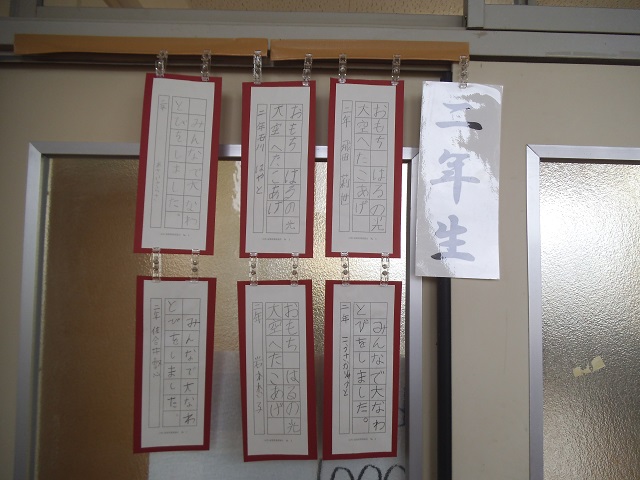 二年生
おもち はるの光
大空へたこあげ
二年
おもち はるの光
大空へたこあげ
二年石川 はやと
みんなで大なわ
とびをしました。
みんなで大なわ
とびをしました。
二年
おもち はるの光
大空へたこあげ
二年
みんなで大なわ
とびをしました。
二年